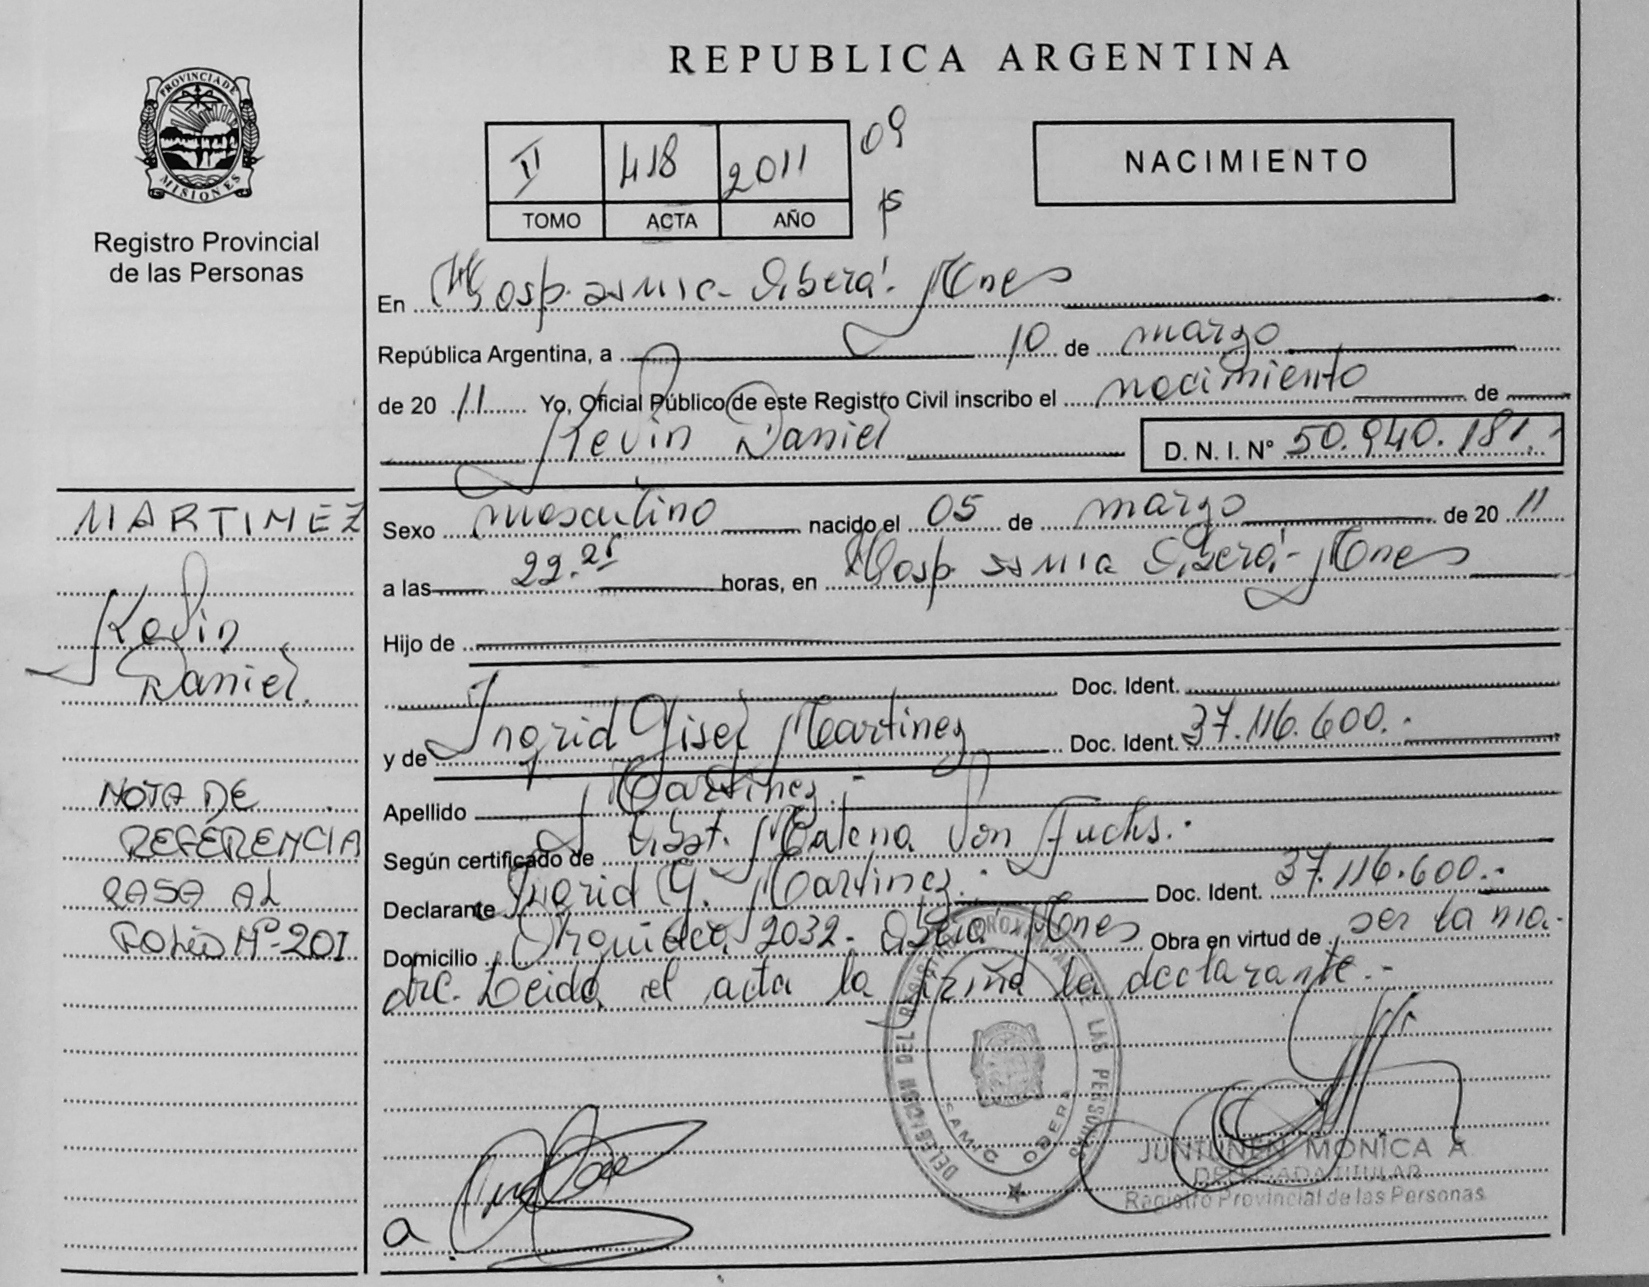 REPUBLICA ARGENTINA
PROVINCIA DE MISIONES
Registro Provincial
de las Personas
II 418 2011 09
TOMO ACTA AÑO
NACIMIENTO
En Hosp. SAMIC - Oberá - Mnes
República Argentina, a 10 de marzo
de 20 11 Yo, Oficial Público de este Registro Civil inscribo el nacimiento de
Kevin Daniel D. N. I. Nº 50.940.181.
Sexo masculino nacido el 05 de marzo de 20 11
a las 22.25 horas, en Hosp SAMIC Oberá - Mnes
Hijo de
Doc. Ident.
y de Ingrid Gisel Martinez Doc. Ident. 37.116.600.-
Apellido Martinez.-
Según certificado de Obst. Malena Von Fuchs.-
Declarante Ingrid G. Martinez.- Doc. Ident. 37.116.600.-
Domicilio Orquidea 2032 - Oberá Mnes Obra en virtud de ser la ma-
dre. Leida el acta la firma la declarante.-
MARTINEZ
Kevin
Daniel.
NOTA DE
REFERENCIA
PASA AL
FOLIO Nº 201
DEL REGISTRO PROVINCIAL DE LAS PERSONAS
SAMIC OBERA
JUNTUNEN MONICA A
DELEGADA TITULAR
Registro Provincial de las Personas
a